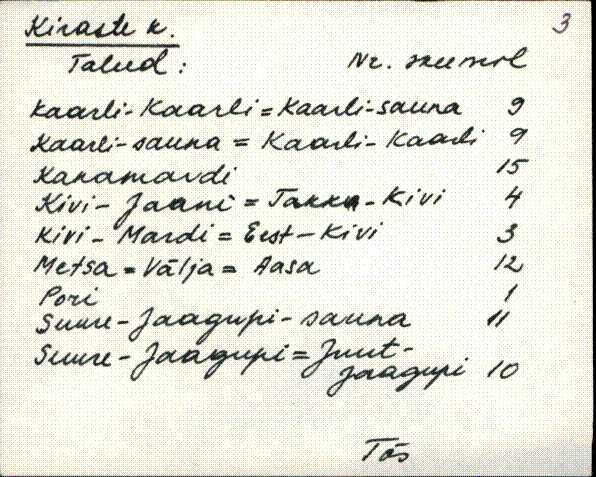 Kiraste k.
3
Talud:
Nr. skeemil
Kaarli-Kaarli=Kaarli-sauna 9
Kaarli-sauna = Kaarli-Kaarli 9
Kanamardi 15
Kivi-Jaani = Takka-Kivi 4
Kivi-Mardi = Eest-Kivi 3
Metsa = Välja = Aasa 12
Pori 1
Suure-Jaagupi-sauna 11
Suure-Jaagupi=Juut-
Jaagupi 10
Tõs